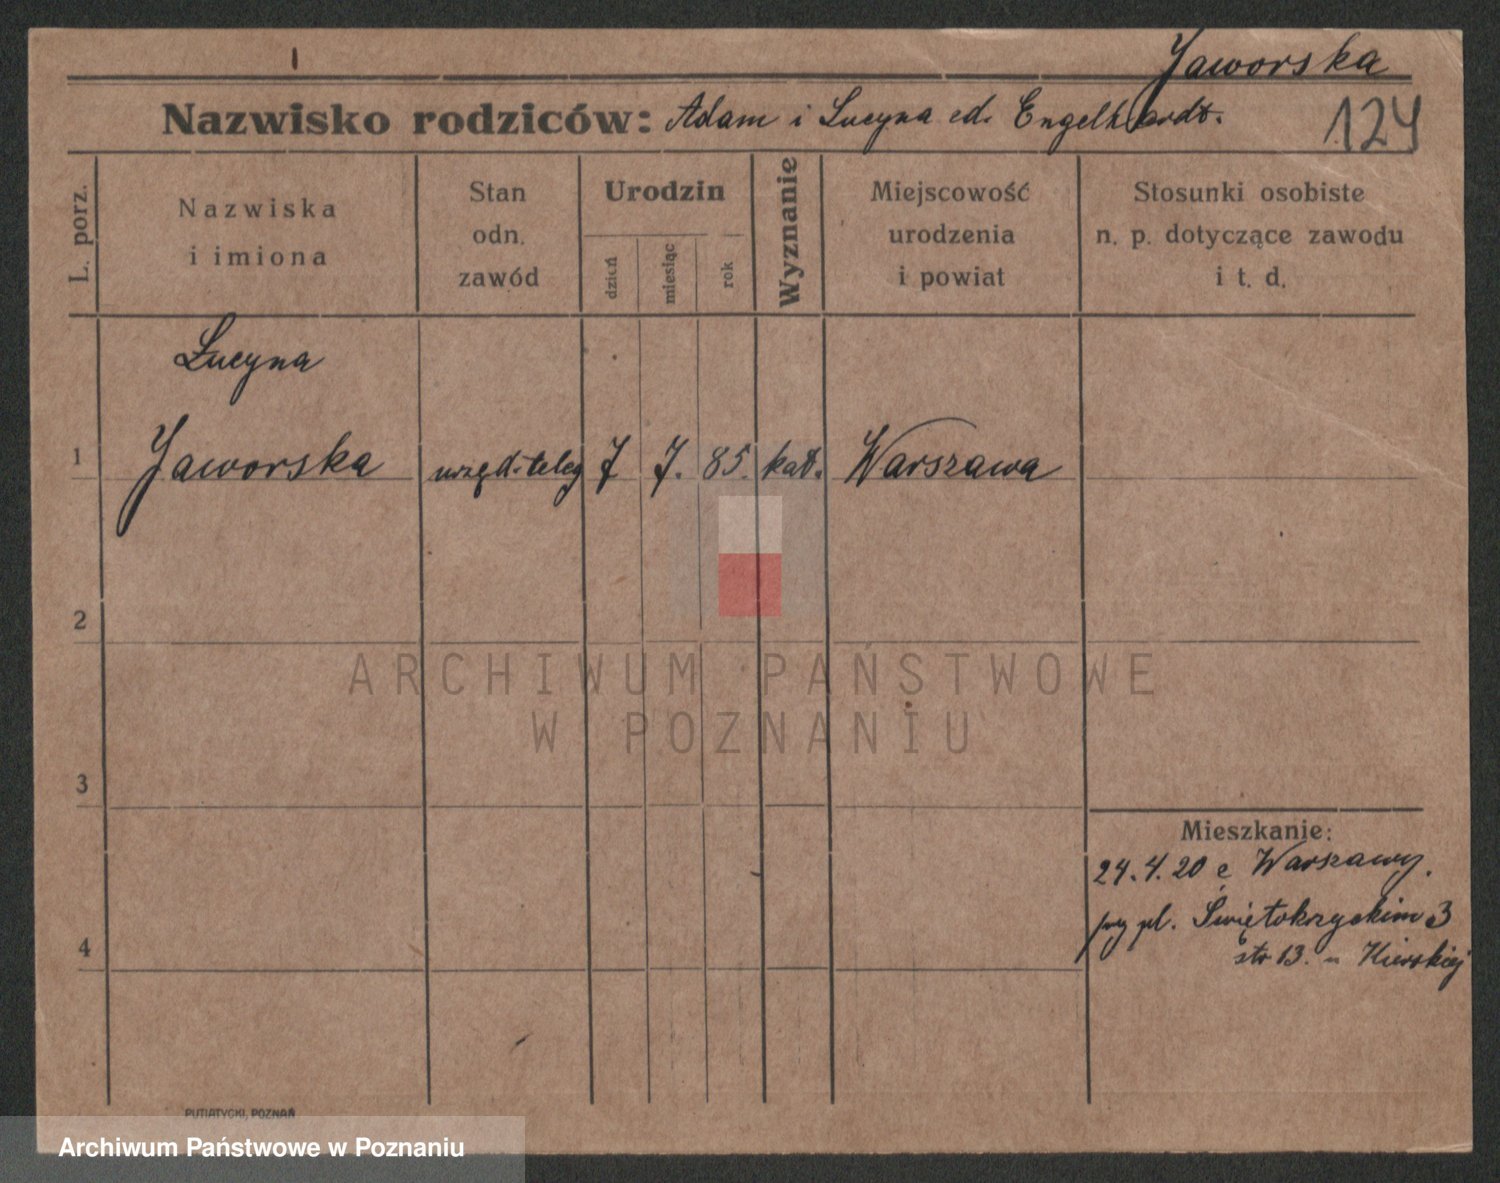 Jaworska
Nazwisko rodziców: Adam i Lucyna cd. Engelhardt.
124
L. porz.
Nazwiska
i imiona
Stan
odn.
zawód
Urodzin
dzień
miesiąc
rok
Wyznanie
Miejscowość
urodzenia
i powiat
Stosunki osobiste
n. p. dotyczące zawodu
i t. d.
Lucyna
1 Jaworska urzęd. teleg 7 7. 85. kat. Warszawa
2
ARCHIWUM PAŃSTWOWE
W POZNANIU
3
Mieszkanie:
24.4.20 Warszawy.
pl. Świętokrzyskim 3
str 13.
4
PUTIATYCKI, POZNAŃ
Archiwum Państwowe w Poznaniu